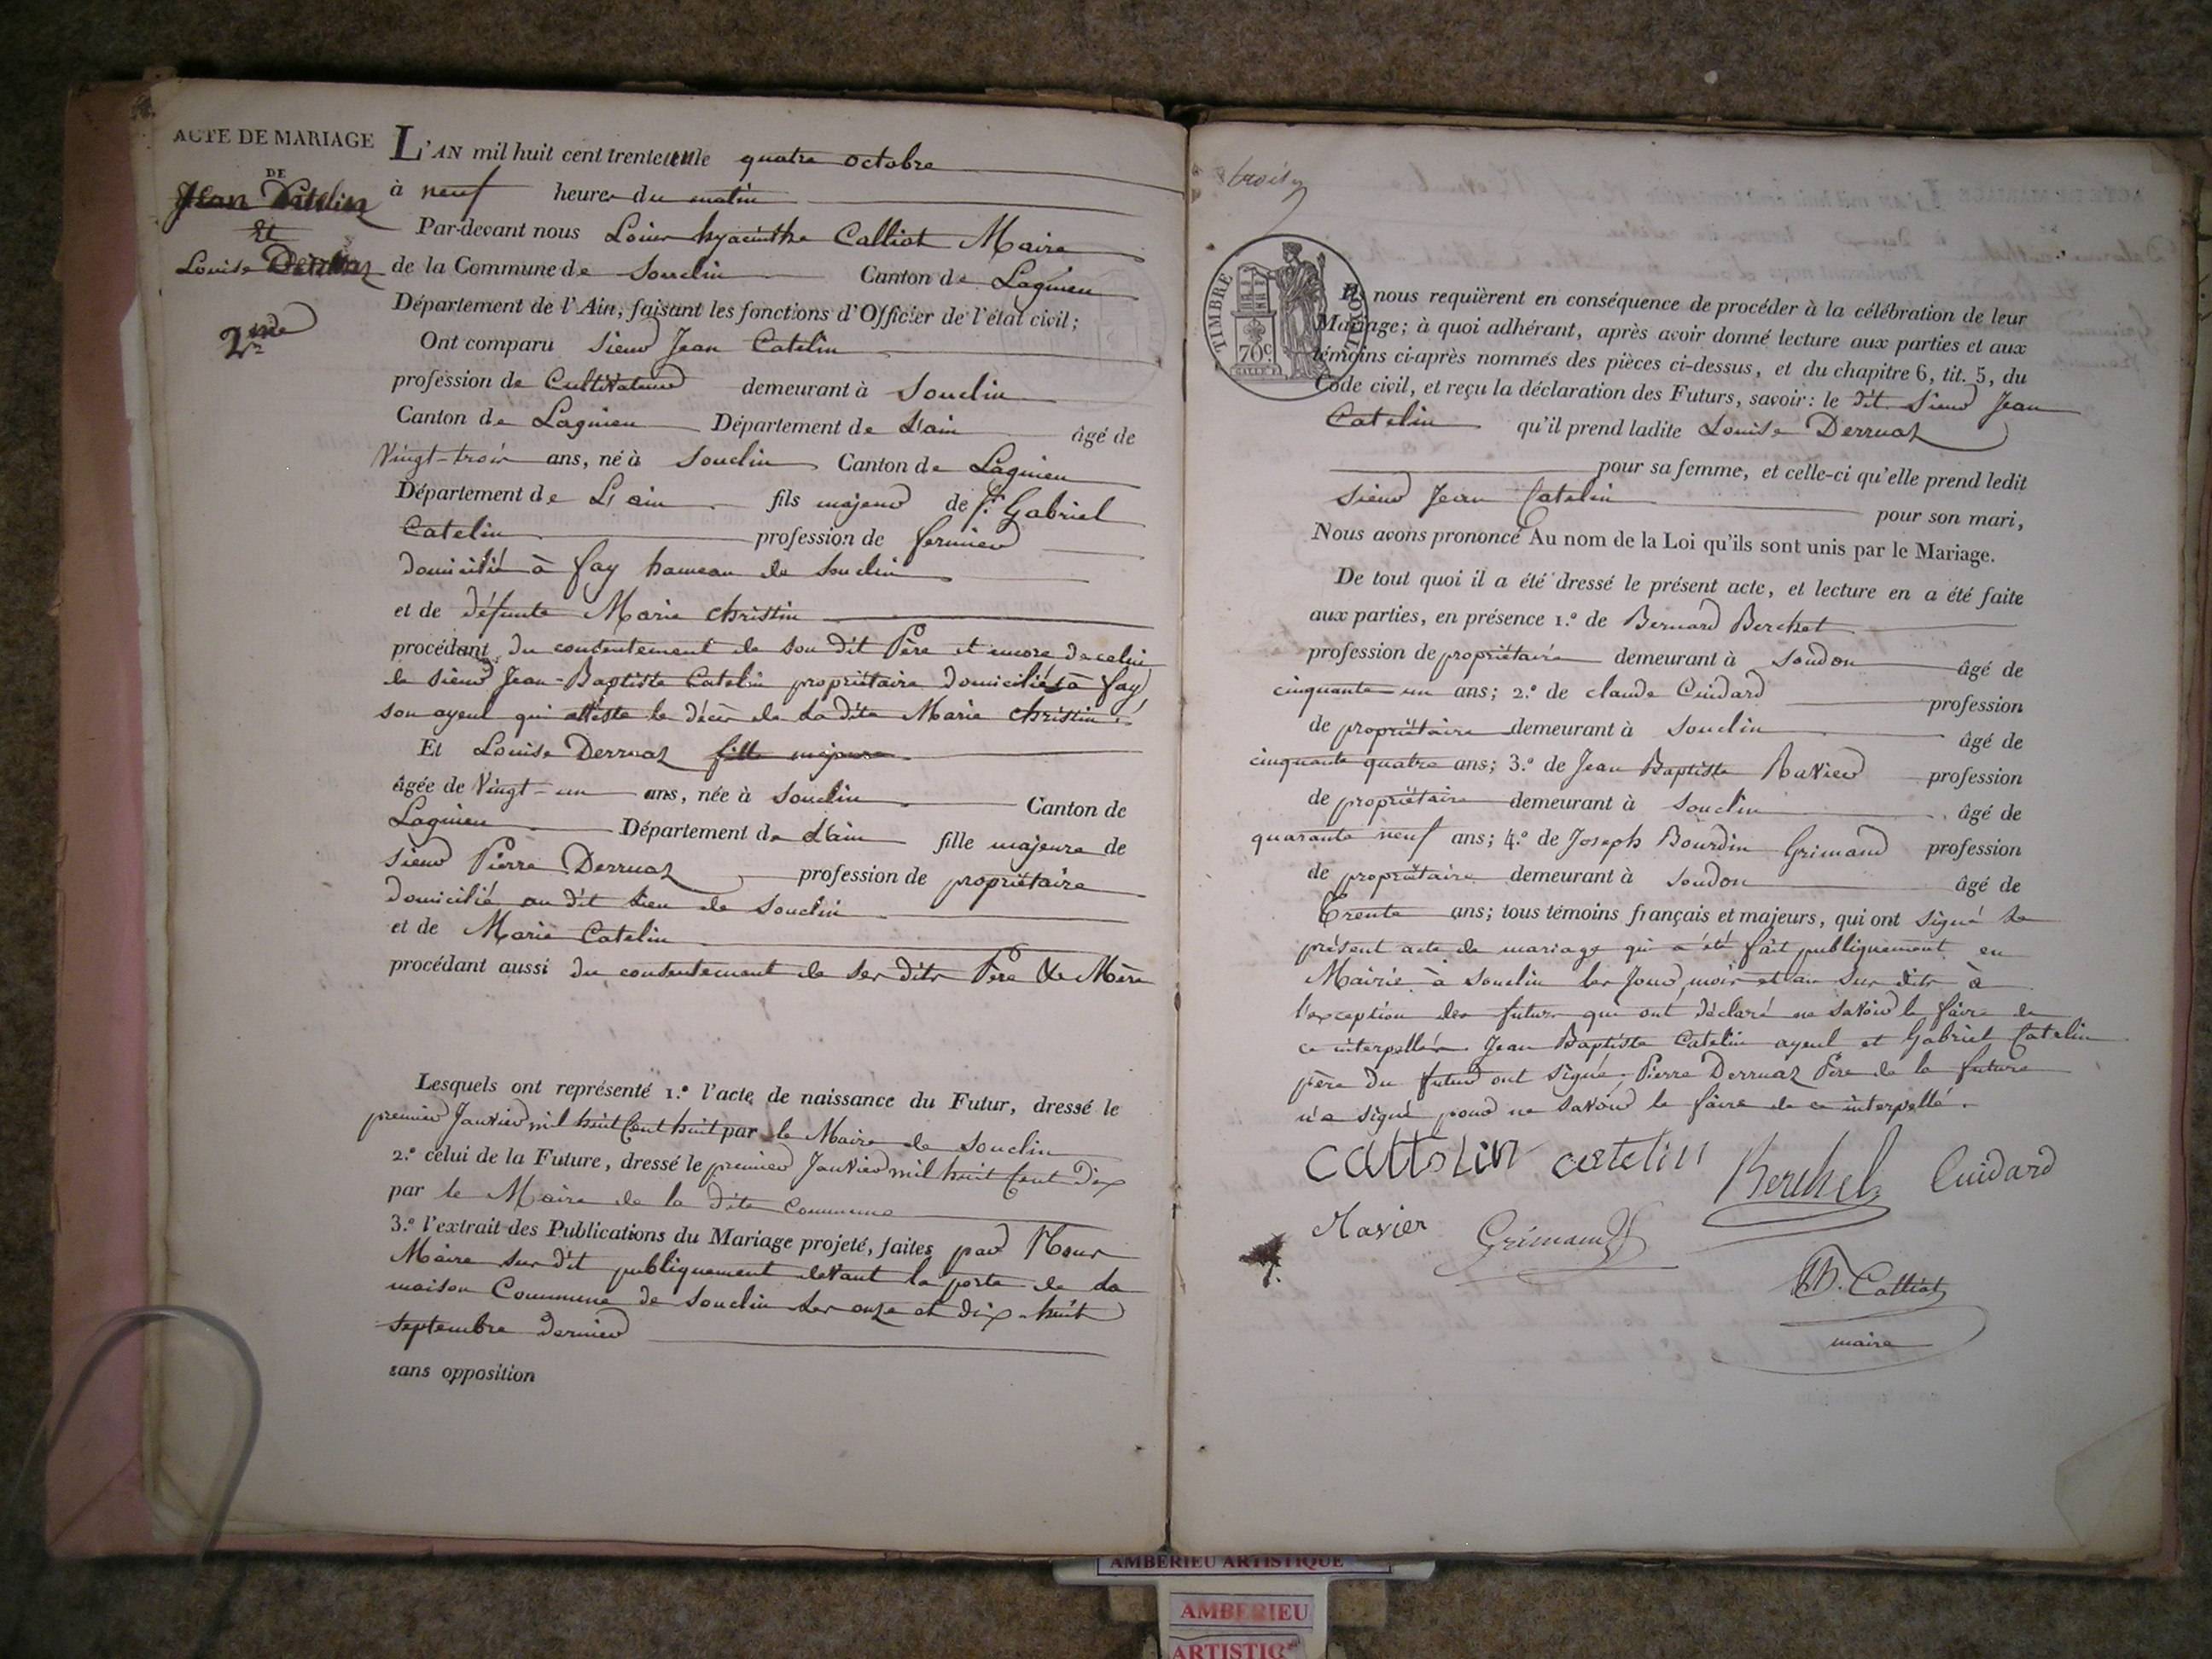 ACTE DE MARIAGE
DE
Jean Catelin
Et
Louise Derruaz
2me
L'AN mil huit cent trente un le quatre octobre
à neuf heures du matin
Par-devant nous Louis hyacinthe Calliot Maire
de la Commune de Souclin Canton de Lagnieu
Département de l'Ain, faisant les fonctions d'Officier de l'état civil;
Ont comparu Sieur Jean Catelin
profession de Cultivateur demeurant à Souclin
Canton de Lagnieu Département de L'ain âgé de
Vingt-trois ans, né à Souclin Canton de Lagnieu
Département de L'ain fils majeur de Sr. Gabriel
Catelin profession de fermier
domicilié à fay hameau de Souclin
et de défunte Marie christin
procédant du consentement de son dit Père et encore de celui
de Sieur Jean-Baptiste Catelin propriétaire domiciliés à fay,
son ayeul qui atteste le décès de la dite Marie christin;
Et Louise Derruaz fille majeure
âgée de Vingt-un ans, née à Souclin Canton de
Lagnieu Département de L'ain fille majeure de
Sieur Pierre Derruaz profession de propriétaire
domicilié au dit lieu de Souclin
et de Marie Catelin
procédant aussi du consentement de ses dits Père & Mère
Lesquels ont représenté 1.º l'acte de naissance du Futur, dressé le
premier Janvier mil huit Cent huit par le Maire de Souclin
2.º celui de la Future, dressé le premier Janvier mil huit Cent dix
par le Maire de la dite Commune
3.º l'extrait des Publications du Mariage projeté, faites par Nous
Maire sus dit publiquement devant la porte de la
maison Commune de Souclin les onze et dix-huit
septembre dernier
sans opposition
trois
TIMBRE ROYAL
70 c.
Ils nous requièrent en conséquence de procéder à la célébration de leur
Mariage; à quoi adhérant, après avoir donné lecture aux parties et aux
témoins ci-après nommés des pièces ci-dessus, et du chapitre 6, tit. 5, du
Code civil, et reçu la déclaration des Futurs, savoir: le dit Sieur Jean
Catelin qu'il prend ladite Louise Derruaz
pour sa femme, et celle-ci qu'elle prend ledit
Sieur Jean Catelin pour son mari,
Nous avons prononcé Au nom de la Loi qu'ils sont unis par le Mariage.
De tout quoi il a été dressé le présent acte, et lecture en a été faite
aux parties, en présence 1.º de Bernard Berchet
profession de propriétaire demeurant à Soudon âgé de
cinquante un ans; 2.º de claude Cuidard profession
de propriétaire demeurant à Souclin âgé de
cinquante quatre ans; 3.º de Jean Baptiste Ravier profession
de propriétaire demeurant à Souclin âgé de
quarante neuf ans; 4.º de Joseph Bourdin Grimand profession
de propriétaire demeurant à Soudon âgé de
Trente ans; tous témoins français et majeurs, qui ont signé le
présent acte de mariage qui a été fait publiquement en
Mairie à Souclin les Jour, mois et an sus dits à
l'exception des futurs qui ont déclaré ne savoir le faire de
ce interpellés. Jean Baptiste Catelin ayeul et Gabriel Catelin
père du futur ont signé. Pierre Derruaz Père de la future
n'a signé pour ne savoir le faire de ce interpellé.
cattelin catelin Berchet Cuidard
Ravier Grimand
Calliot
maire
AMBERIEU ARTISTIQUE
AMBERIEU
ARTISTIQ